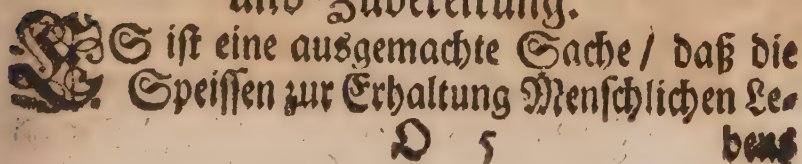 und Zubereitung.
ES ist eine ausgemachte Sache / daß die
Speissen zur Erhaltung Menschlichen Le-
O 5 bens